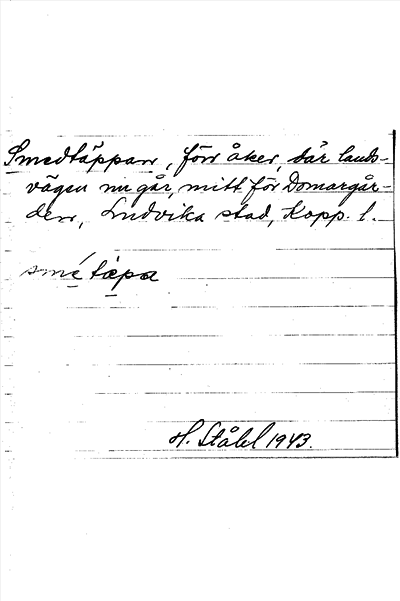 Smedtäppan, förr åker, där lands-
vägen nu går, mitt för Domargår-
den, Ludvika stad, Kopp. l.
smétä̀pa
H. Ståhl 1943.